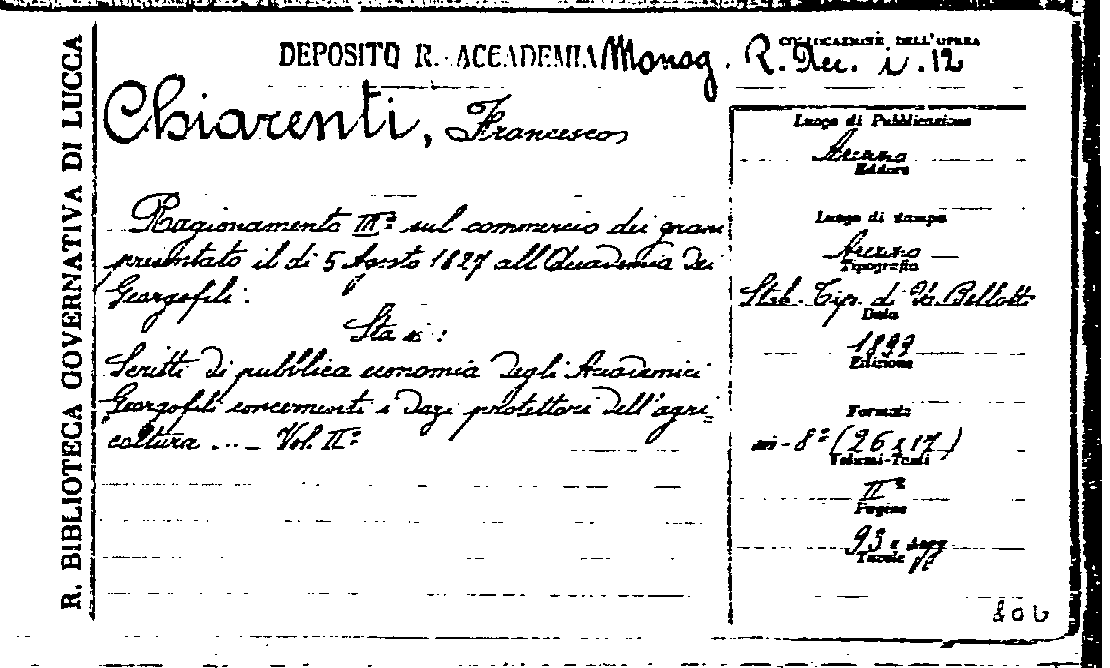 R. BIBLIOTECA GOVERNATIVA DI LUCCA
DEPOSITO R. ACCADEMIA Monog.
COLLOCAZIONE DELL'OPERA
R. Acc. i. 12
Chiarenti, Francesco
Ragionamento III° sul commercio dei grani
presentato il dì 5 Agosto 1827 all'Accademia dei
Georgofili.
Sta in:
Scritti di pubblica economia degli Accademici
Georgofili concernenti i dazi protettori dell'agri=
coltura .... Vol. II°
Luogo di Pubblicazione
Arezzo
Editore
Luogo di stampa
Arezzo
Tipografia
Stab. Tip. di Bellotti
Data
1899
Edizione
Formato
in-8° (26 x 17)
Volumi-Tomi
II°
Pagine
93 e segg
Tavole